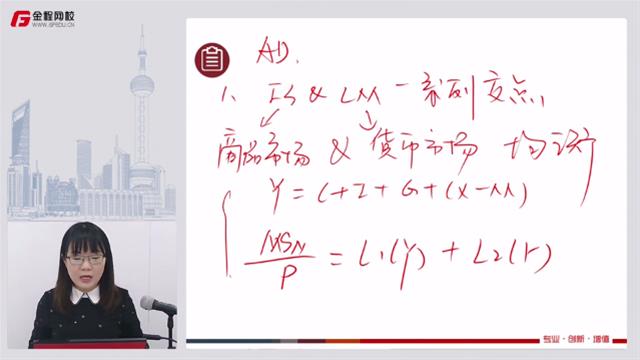 金程网校
WWW.GFEDU.CN
AD.
1. IS & LM 一系列交点,
商品市场 & 货币市场 均衡
Y = C + I + G + (X-M)
MSN/P = L1(Y) + L2(r)
专业·创新·增值